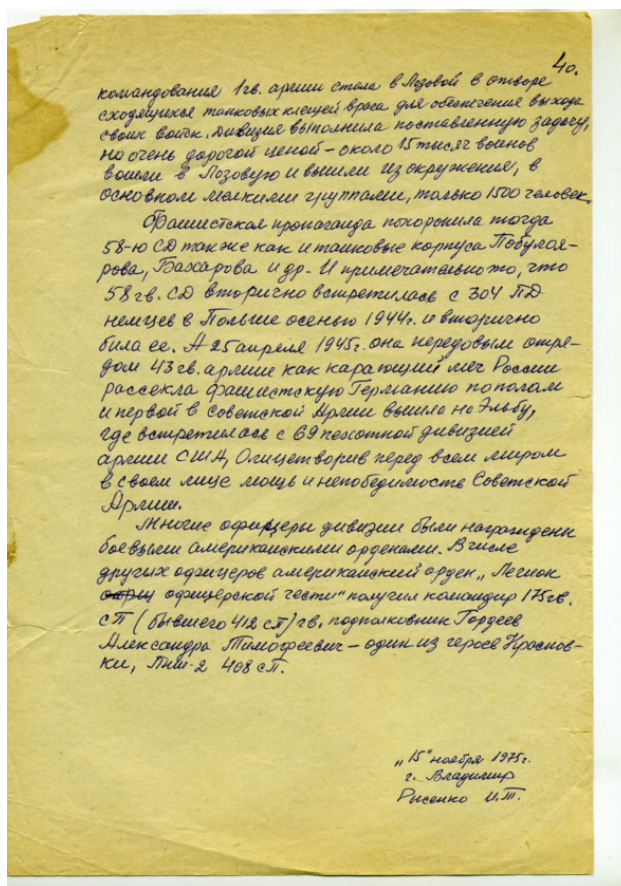 40.
командования 1гв. армии стала в Лозовой в створе
сходящихся танковых клещей врага для обеспечения выхода
своих войск. Дивизия выполнила поставленную задачу,
но очень дорогой ценой – около 15 тысяч воинов
вошли в Лозовую и вышли из окружения, в
основном мелкими группами, только 1500 человек.
Фашистская пропаганда похоронила тогда
58-ю СД так же как и танковые корпуса
рова, Бахарова и др. И примечательно то, что
58 гв. СД вторично встретилась с 304 ПД
немцев в Польше осенью 1944г. и вторично
била ее. А 25 апреля 1945г. она передовым отря-
дом 43 гв. армии как карающий меч России
рассекла фашистскую Германию пополам
и первой в Советской Армии вышла на Эльбу,
где встретилась с 69 пехотной дивизией
армии США, Олицетворив перед всем миром
в своем лице мощь и непобедимость Советской
Армии.
Многие офицеры дивизии были награждены
боевыми американскими орденами. В числе
других офицеров американский орден „Легион
офицерской чести" получил командир 175гв.
СП (бывшего 412 СП) гв. подполковник Гордеев
Александр Тимофеевич – один из героев Краснов-
ки, ПНШ-2 408 СП.
„15" ноября 1975г.
г. Владимир
Рысенко И.Т.